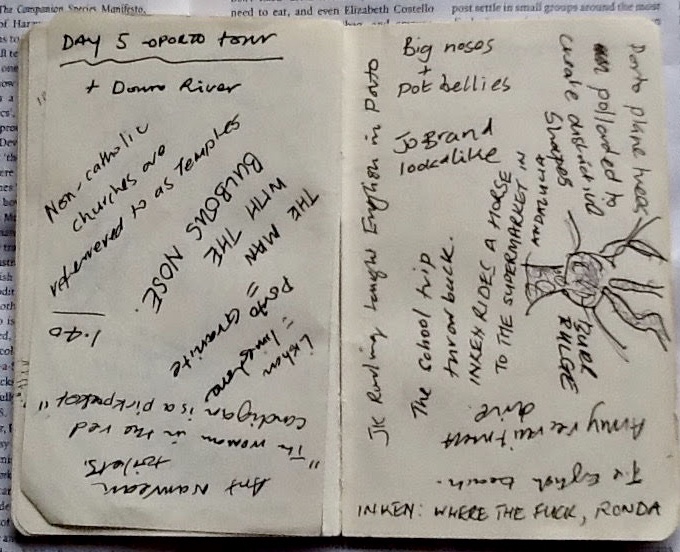 The Companion Species Manifesto,
need to eat, and even Elizabeth Costello
post settle in small groups around the most
DAY 5 - OPORTO TOUR
+ Douro River
Non-catholic
churches are
referred to as Temples
THE MAN
WITH THE
BULBOUS NOSE.
Porto = Granite
Lisbon = limestone
1.40
"The woman in the red
cardigan is a pickpocket"
toilets.
Big noses
+
pot bellies
Jo Brand
lookalike
JK Rowling taught English in Porto
The school trip
throwback.
INKEN RIDES A HORSE
TO THE SUPERMARKET IN
ANDALUCIA
Porto plane trees
pollarded to
create distinctive
shapes
BULGE
Army recruitment
drive.
English beach.
INKEN: WHERE THE FUCK, RONDA